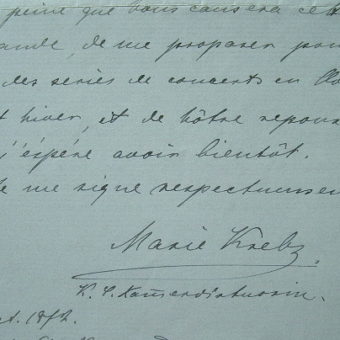 peine que vous causera cet
ande, de me proposer pour
des séries de concerts en
t hiver, et de vôtre repons
j'éspére avoir bientôt.
e me signe respectueusem
Marie Krebs.
K. S. Kammervirtuosin.
t. 1872.